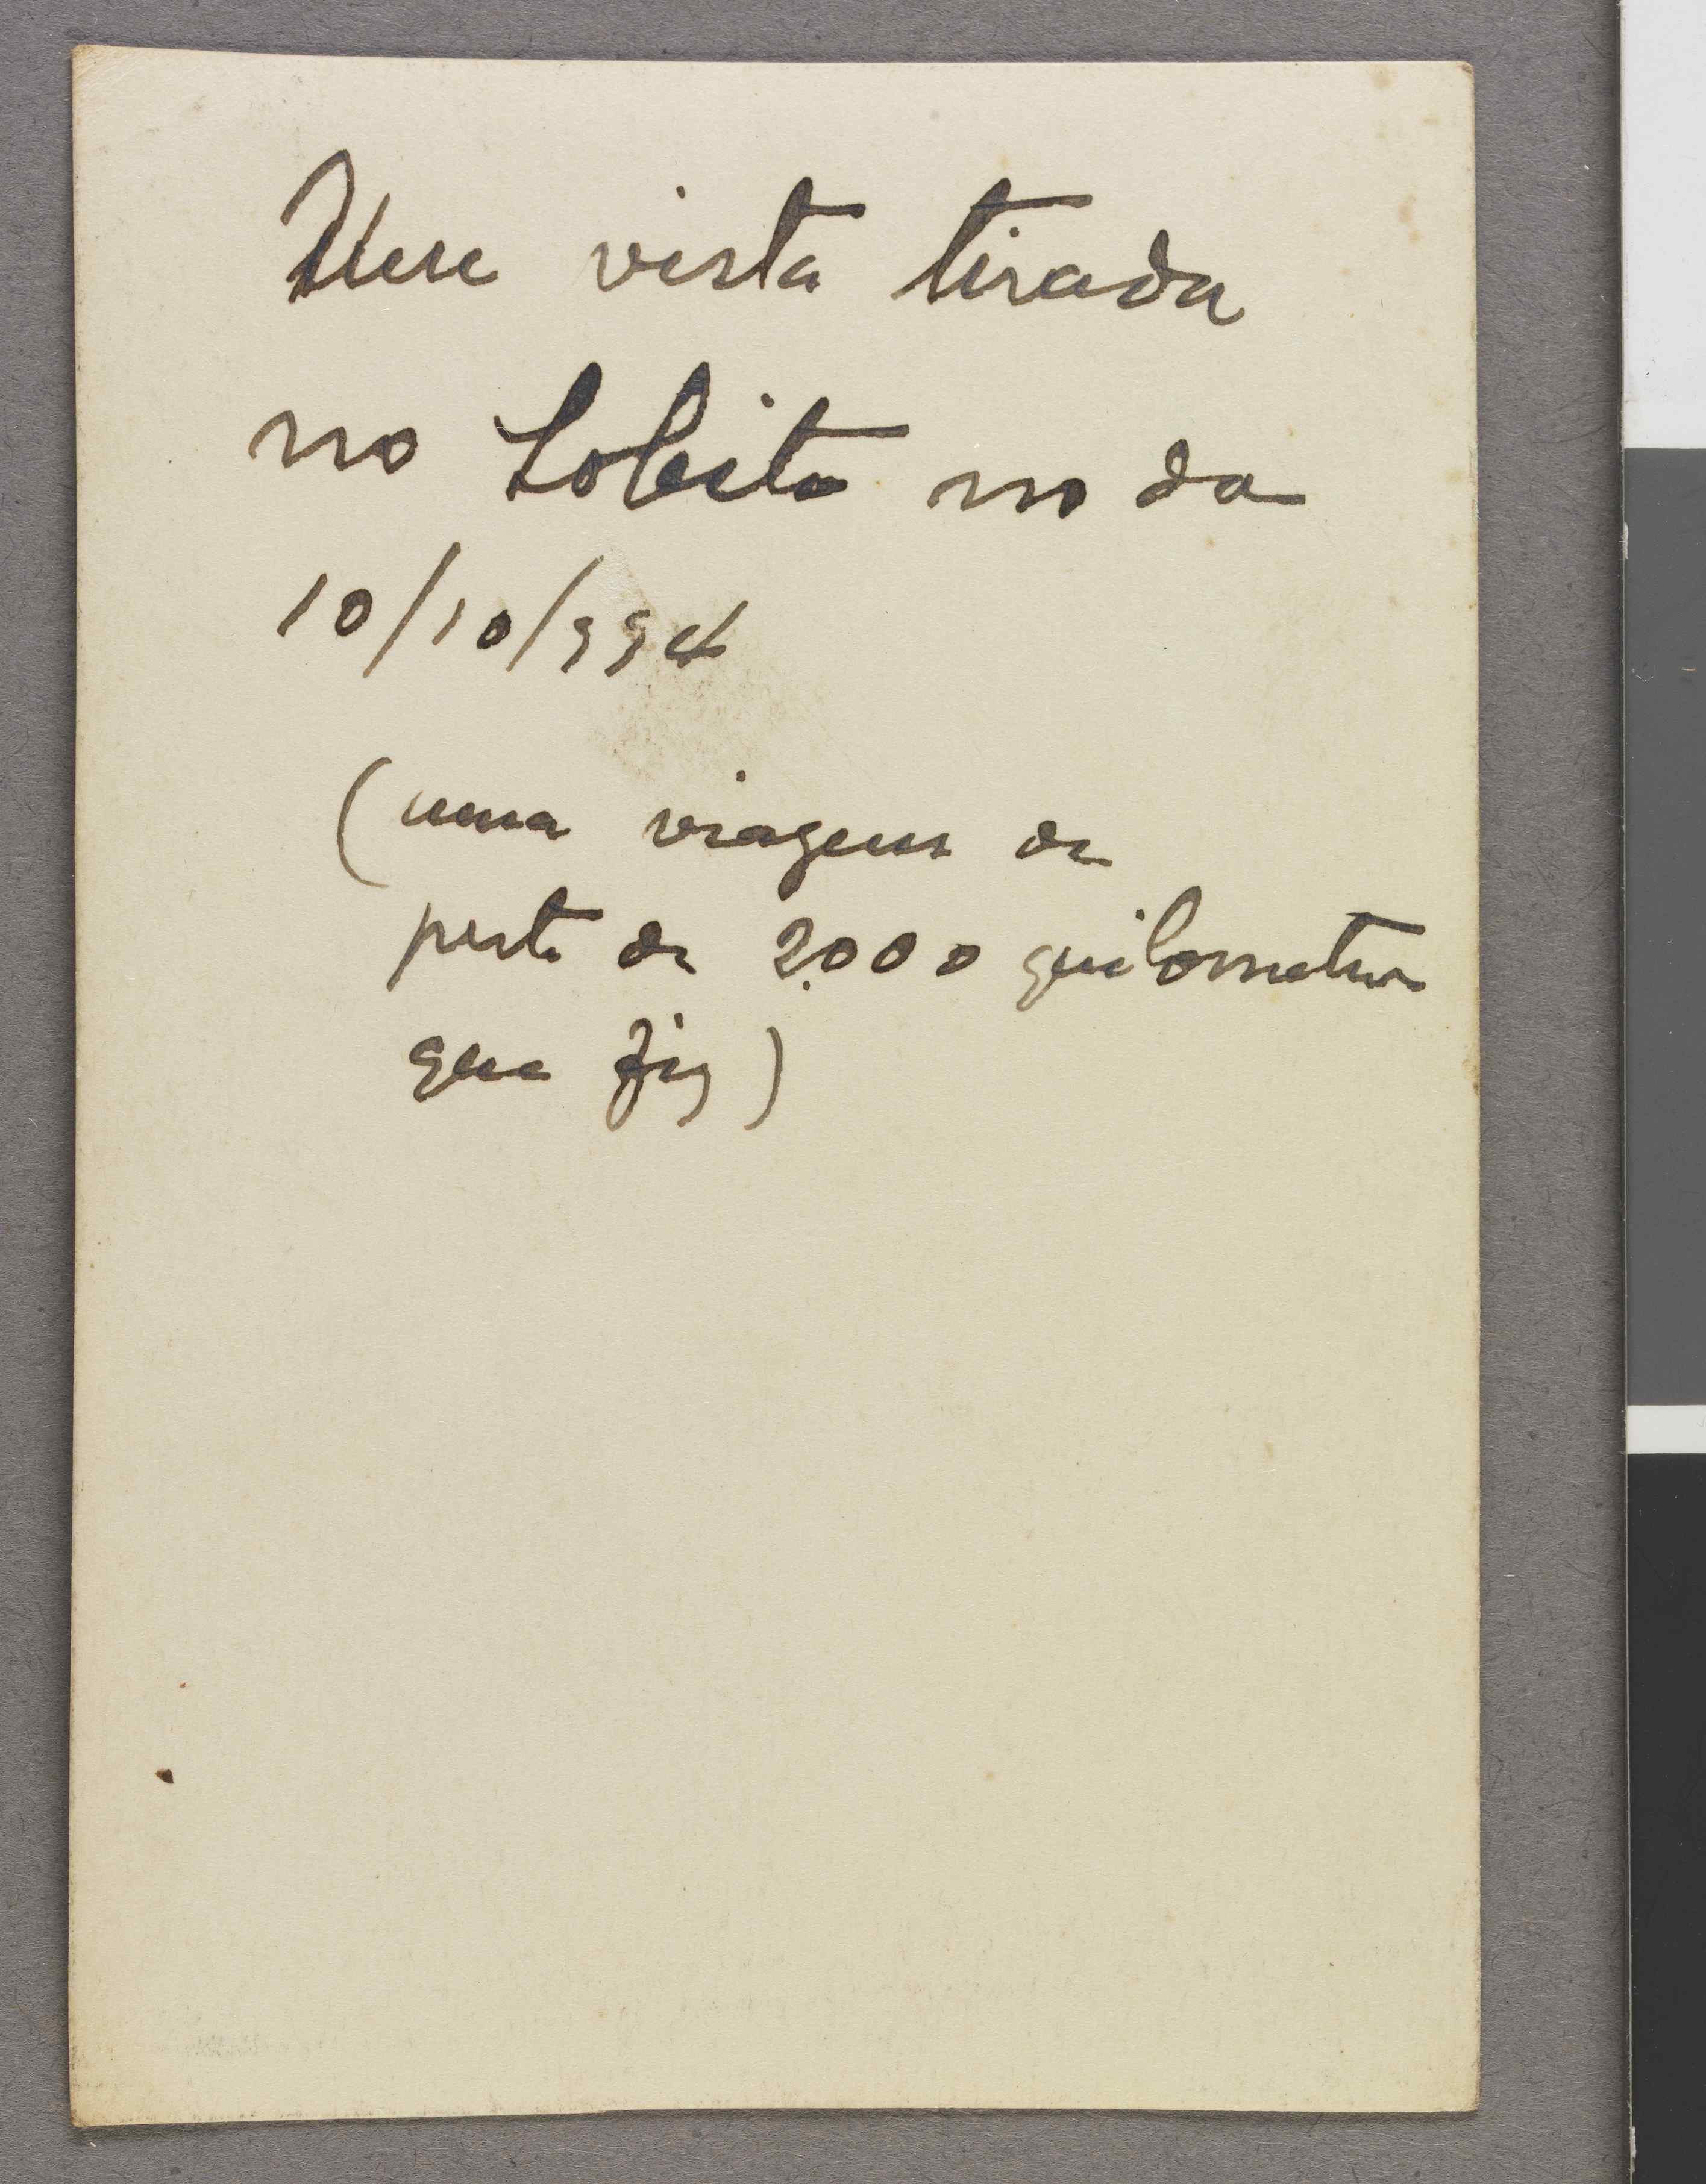 Uma vista tirada
no Lobito no da
10/10/994
(uma viagem de
perto de 2.000 quilometros
que fiz)